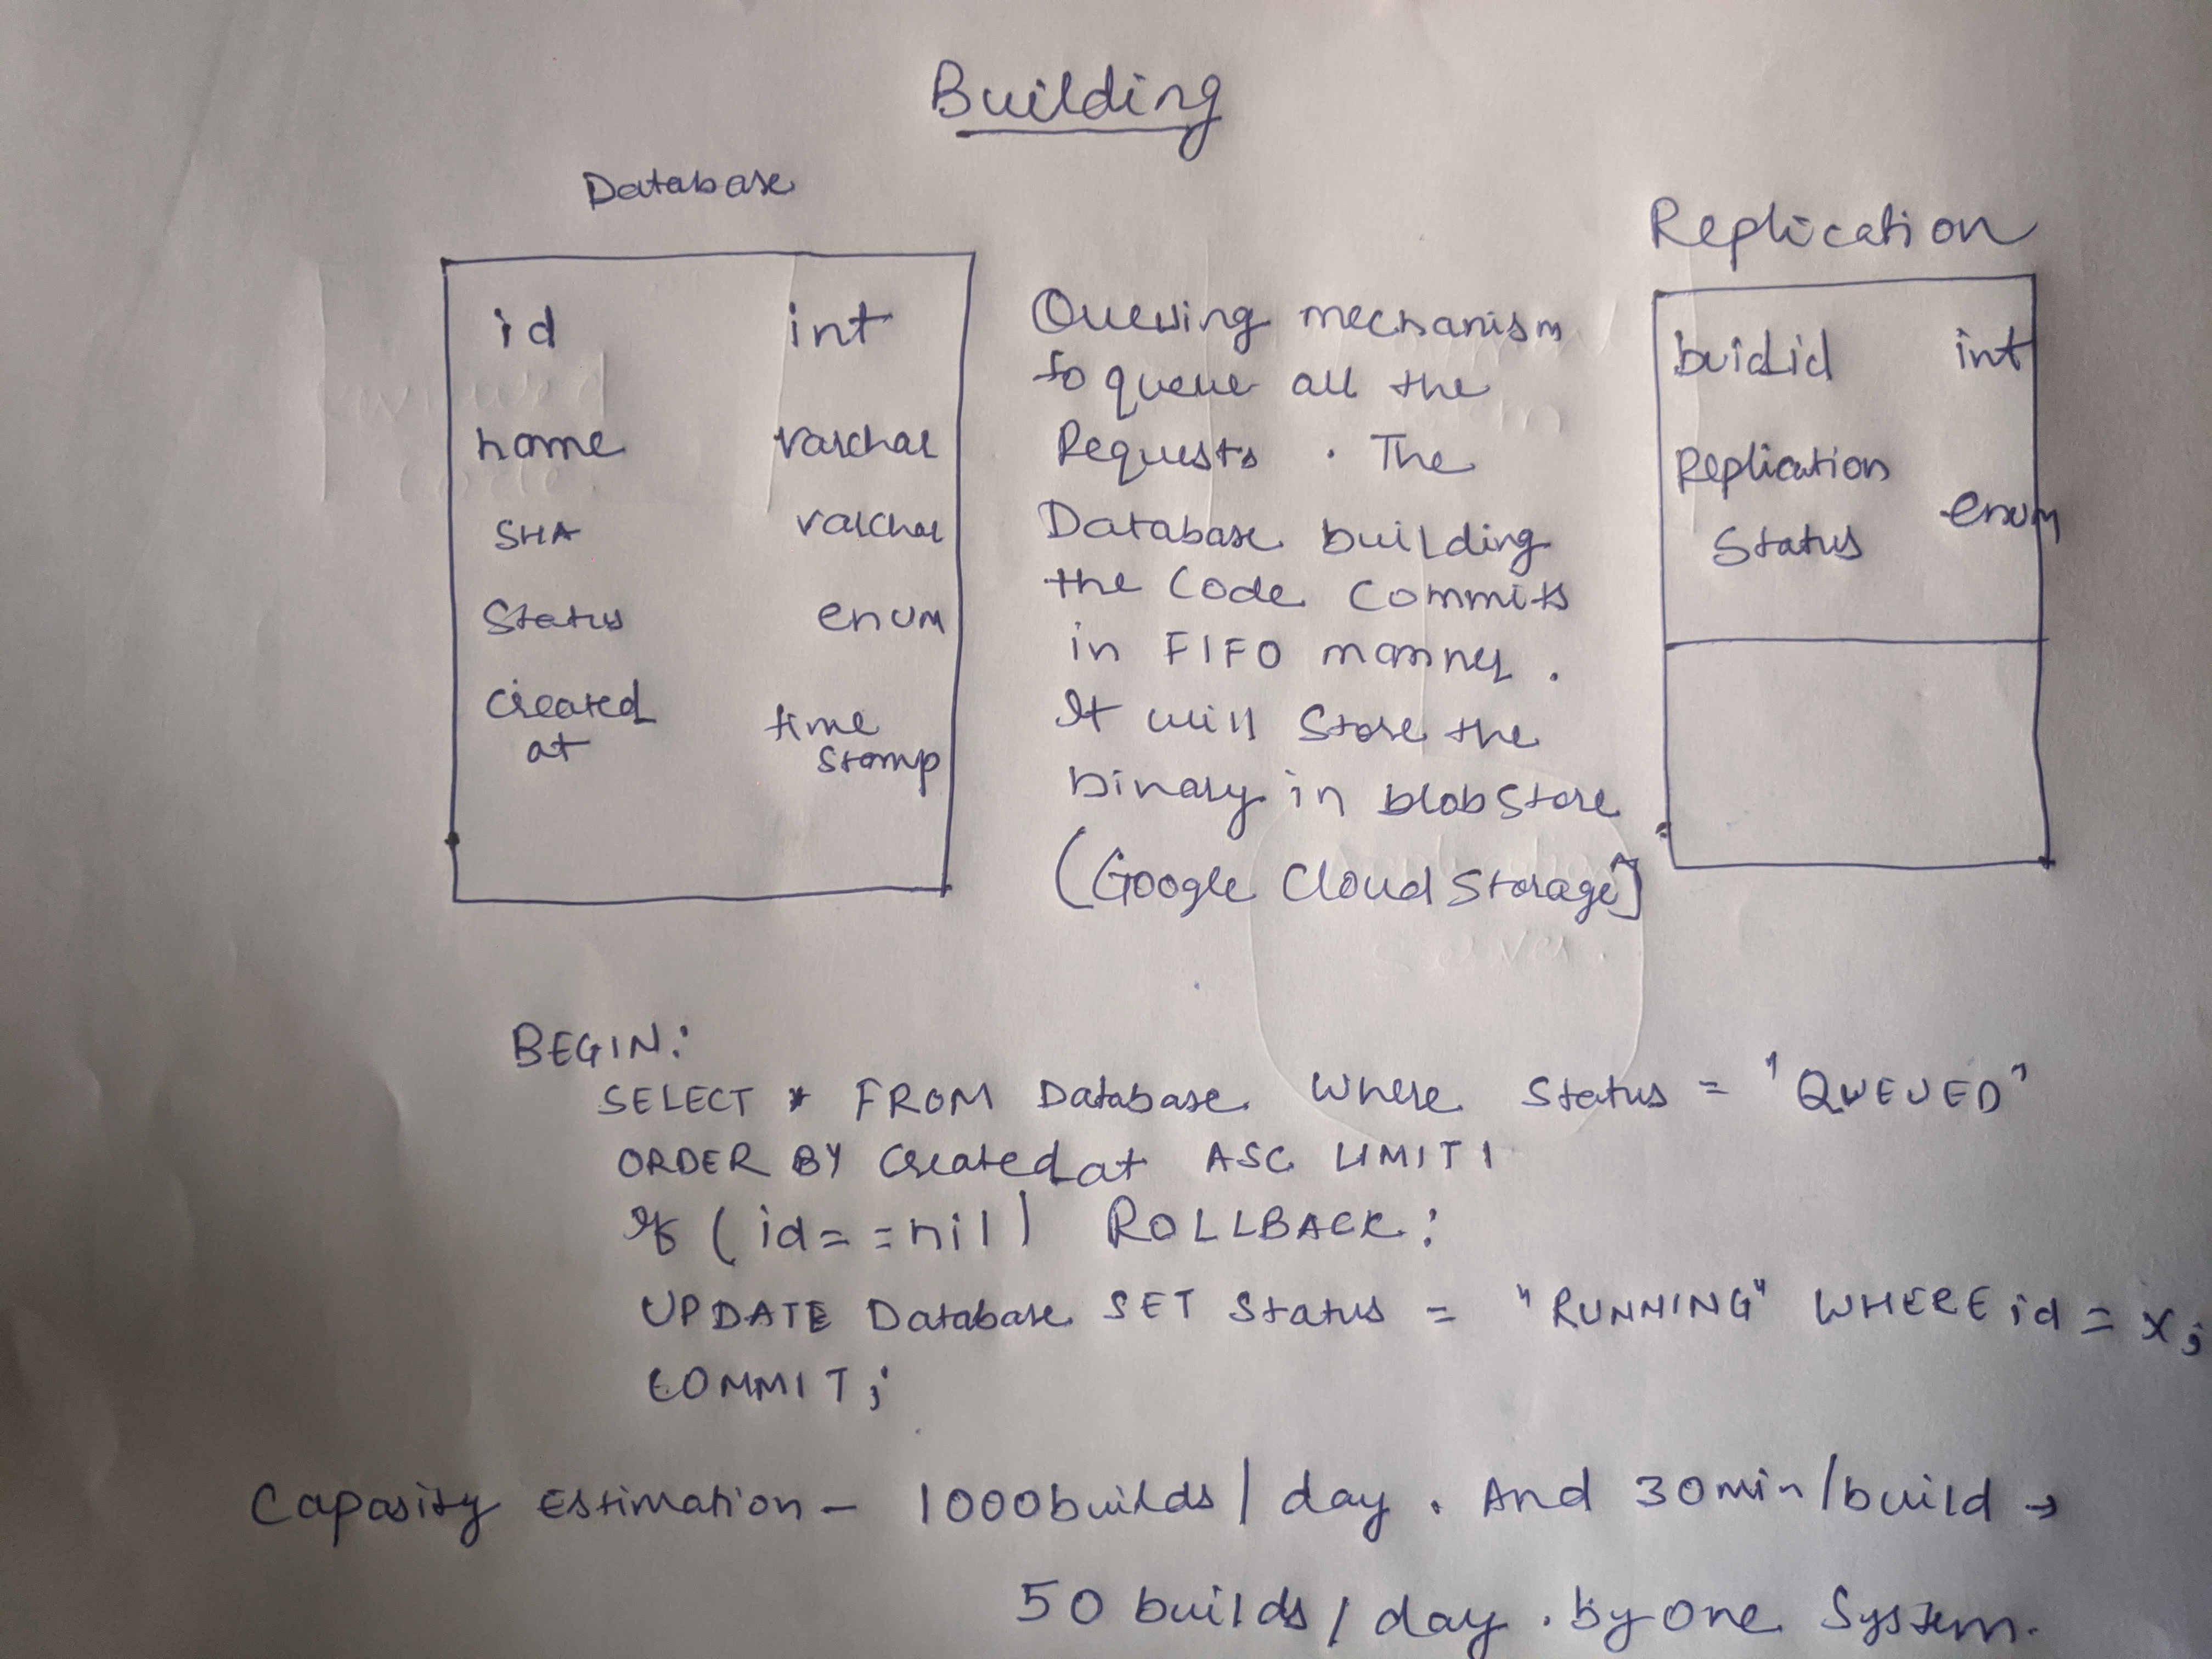 Building
Database
id int
name varchar
SHA varchar
Status enum
Created time
at stamp
Queuing mechanism
to queue all the
Requests. The
Database building
the Code Commits
in FIFO manner.
It will Store the
binary in blob Store
(Google Cloud Storage)
Replication
buidid int
Replication enum
Status
BEGIN:
SELECT * FROM Database Where Status = "QUEUED"
ORDER BY Created at ASC LIMIT 1
If (id == nil) ROLLBACK:
UPDATE Database SET Status = "RUNNING" WHERE id = x;
COMMIT;
Capasity Estimation - 1000builds/day. And 30min/build →
50 builds/day. by one System.